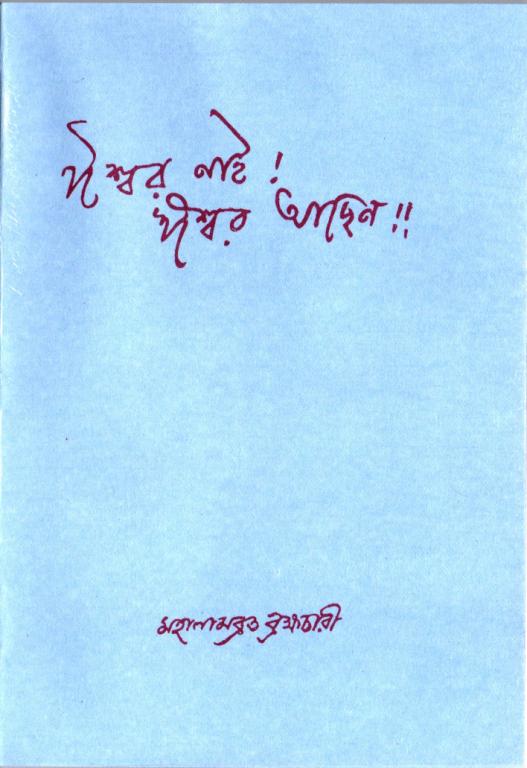 ঈশ্বর নাই!
ঈশ্বর আছেন!!
মহানামব্রত ব্রহ্মচারী